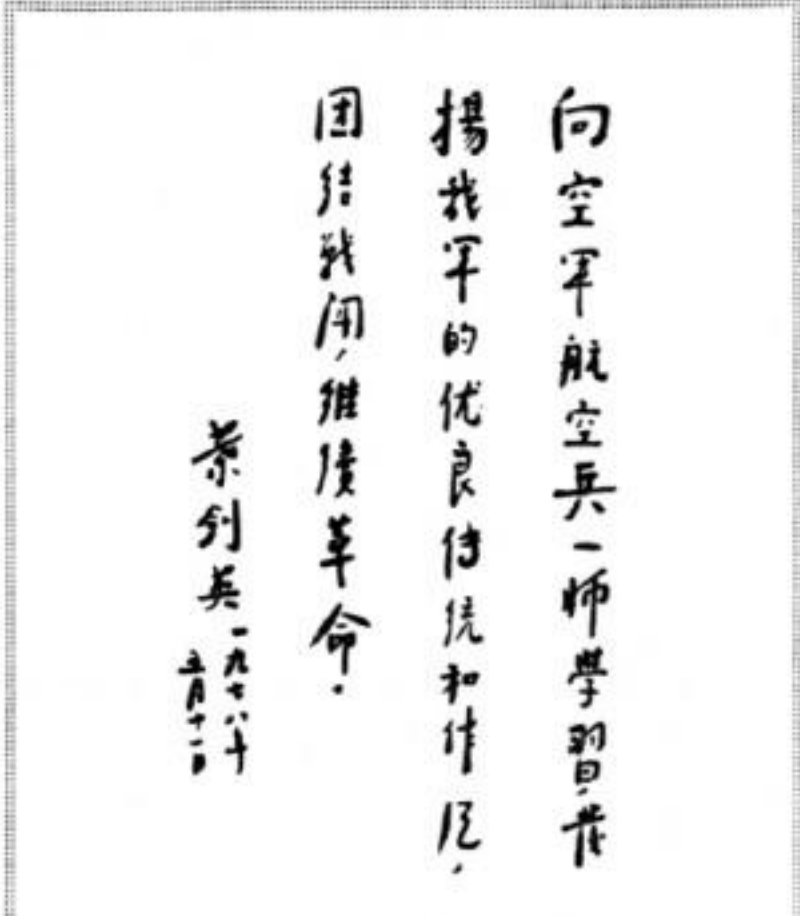 向空军航空兵一师學習，发
揚我军的优良传统和作风，
团结战闘，继續革命。
葉剑英
一九七八年
五月十一日